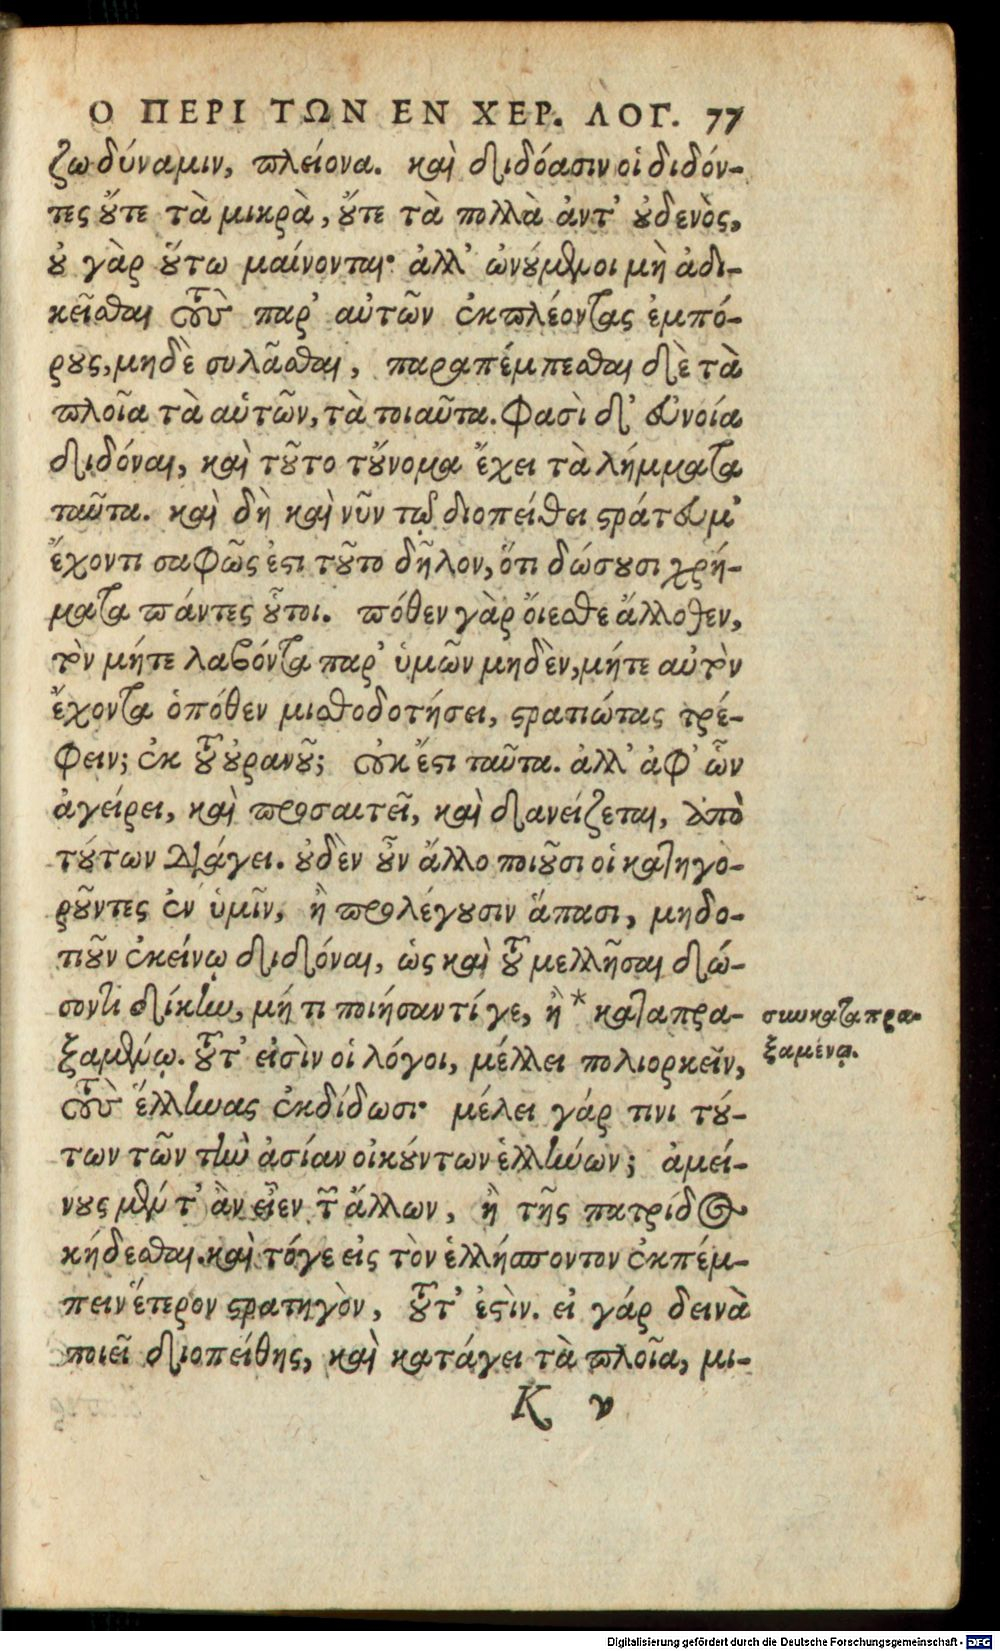 Ο ΠΕΡΙ ΤΩΝ ΕΝ ΧΕΡ. ΛΟΓ. 77
ζω δύναμιν, πλείονα. καὶ διδόασιν οἱ διδόν-
τες οὔτε τὰ μικρὰ, οὔτε τὰ πολλὰ ἀντ' οὐδενὸς,
οὐ γὰρ οὕτω μαίνονται· ἀλλ' ὠνούμενοι μὴ ἀδι-
κεῖσθαι τοὺς παρ' αὐτῶν ἐκπλέοντας ἐμπό-
ρους, μηδὲ συλᾶσθαι, παραπέμπεσθαι δὲ τὰ
πλοῖα τὰ αὑτῶν, τὰ τοιαῦτα. φασὶ δ' εὐνοία
διδόναι, καὶ τοῦτο τοὔνομα ἔχει τὰ λήμματα
ταῦτα. καὶ δὴ καὶ νῦν τῷ διοπείθει στράτευμ'
ἔχοντι σαφῶς ἐστι τοῦτο δῆλον, ὅτι δώσουσι χρή-
ματα πάντες οὗτοι. πόθεν γὰρ ὄιεσθε ἄλλοθεν,
τὸν μήτε λαβόντα παρ' ὑμῶν μηδὲν, μήτε αὐτὸν
ἔχοντα ὁπόθεν μισθοδοτήσει, στρατιώτας τρέ-
φειν; ἐκ τοῦ οὐρανοῦ; οὐκ ἔστι ταῦτα. ἀλλ' ἀφ' ὧν
ἀγείρει, καὶ προσαιτεῖ, καὶ δανείζεται, ἀπὸ
τούτων διάγει. οὐδὲν οὖν ἄλλο ποιοῦσι οἱ κατηγο-
ροῦντες ἐν ὑμῖν, ἢ προλέγουσιν ἅπασι, μηδο-
τιοῦν ἐκείνῳ διδόναι, ὡς καὶ τοῦ μελλῆσαι δώ-
σοντι δίκην, μή τι ποιήσαντί γε, ἢ * καταπρα-
ξαμένῳ. τοῦτ' εἰσὶν οἱ λόγοι, μέλλει πολιορκεῖν,
τοὺς ἕλληνας ἐκδίδωσι· μέλει γάρ τινι τού-
των τῶν τὴν ἀσίαν οἰκούντων ἑλλήνων; ἀμεί-
νους μέν τ' ἂν εἶεν τῶν ἄλλων, ἢ τῆς πατρίδος
κήδεσθαι. καὶ τόγε εἰς τὸν ἑλλήσποντον ἐκπέμ-
πειν ἕτερον στρατηγὸν, τοῦτ' ἐστὶν. εἰ γάρ δεινὰ
ποιεῖ διοπείθης, καὶ κατάγει τὰ πλοῖα, μι-
συγκαταπρα-
ξαμένῳ.
Κ ν
Digitalisierung gefördert durch die Deutsche Forschungsgemeinschaft - DFG